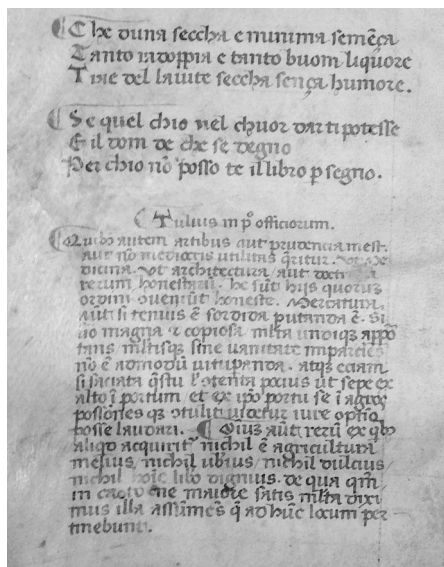 Che duna seccha e minima semēça
Tanto radoppia e tanto buom liquore
Tire del lauite seccha sença humore.
Se quel chio nel chuor dar ti potesse
E il dom de che se degno
Per chio nō posso te il libro p segno.
Tulius in pº officiorum.
Quibꝯ autem artibus aut prudencia inest.
aut nō mediocris utilitas q̄ritur. ut me
dicina. ut architectura aut docti
rerum honestarū. he sūt hijs quorū
ordini ꝯueniūt honeste. Mercatura,
aut si tenuis ē sordida putanda ē. Si
uo magna ⁊ copiosa mlta undiqꝫ appo
tans mltisqꝫ sine uanitate imparties
nō ē admodū uitupanda. atqꝫ eciam
si saciata q̄stu ꝯtenta pocius ut sepe ex
alto ī portum, et ex ipo portu se ī agros
possōnes qꝫ ꝯtulit uidetur iure optīo
posse laudari. ¶ Oīuꝫ aūt rerū ex qbꝯ
aliqd acquirit nichil ē agricultura
melius, nichil ubius, nichil dulcius
nichil hoīe libo dignius. de qua qm̄
in catone maiore satis mlta dixi
mus illa assūmes q̄ ad hūc locum per
tinebunt.